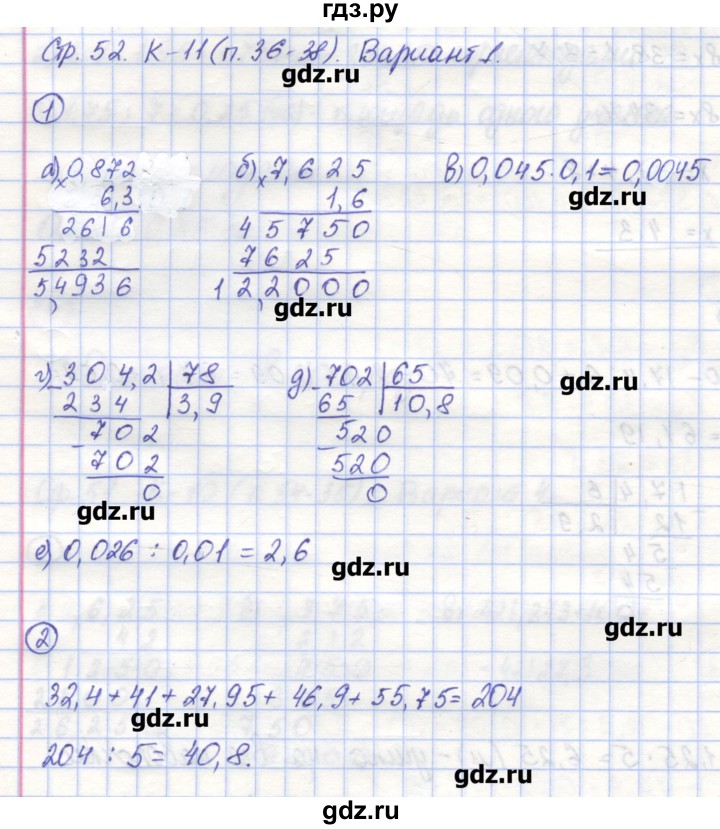 гдз.ру
Стр. 52. К-11 (п. 36-38). Вариант 1.
gdz.ru
1
а) × 0,872
6,3
2616
5232
5,4936
б) × 7,625
1,6
45750
7625
12,2000
gdz.ru
в) 0,045 · 0,1 = 0,0045
gdz.ru
г) 304,2 | 78
234 | 3,9
702
702
0
gdz.ru
д) 702 | 65
65 | 10,8
520
520
0
gdz.ru
е) 0,026 : 0,01 = 2,6
gdz.ru
2
gdz.ru
32,4 + 41 + 27,95 + 46,9 + 55,75 = 204
gdz.ru
204 : 5 = 40,8.
gdz.ru
gdz.ru